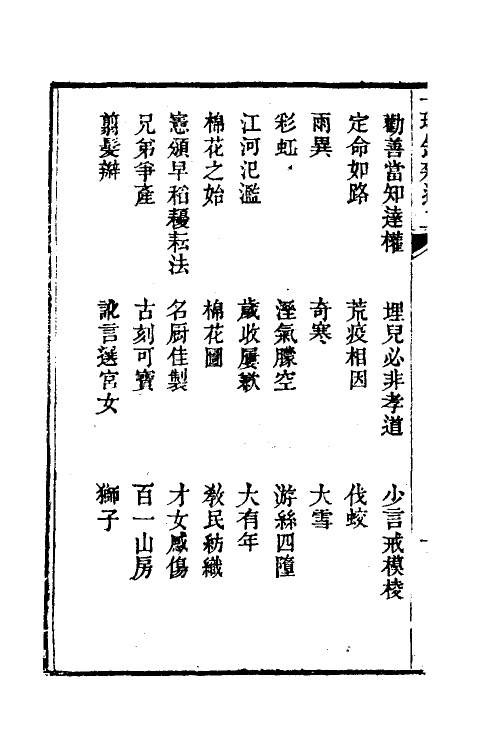 勸善當知達權　埋兒必非孝道　少言戒模棱
定命如路　荒疫相因　伐蛟
雨異　奇寒　大雪
彩虹　溼氣朦空　游絲四墮
江河汜濫　歲收屢歉　大有年
棉花之始　棉花圖　敎民紡織
憲頒早稻耰耘法　名厨佳製　才女感傷
兄弟爭產　古刻可寶　百一山房
翦髮辮　訛言選宮女　獅子